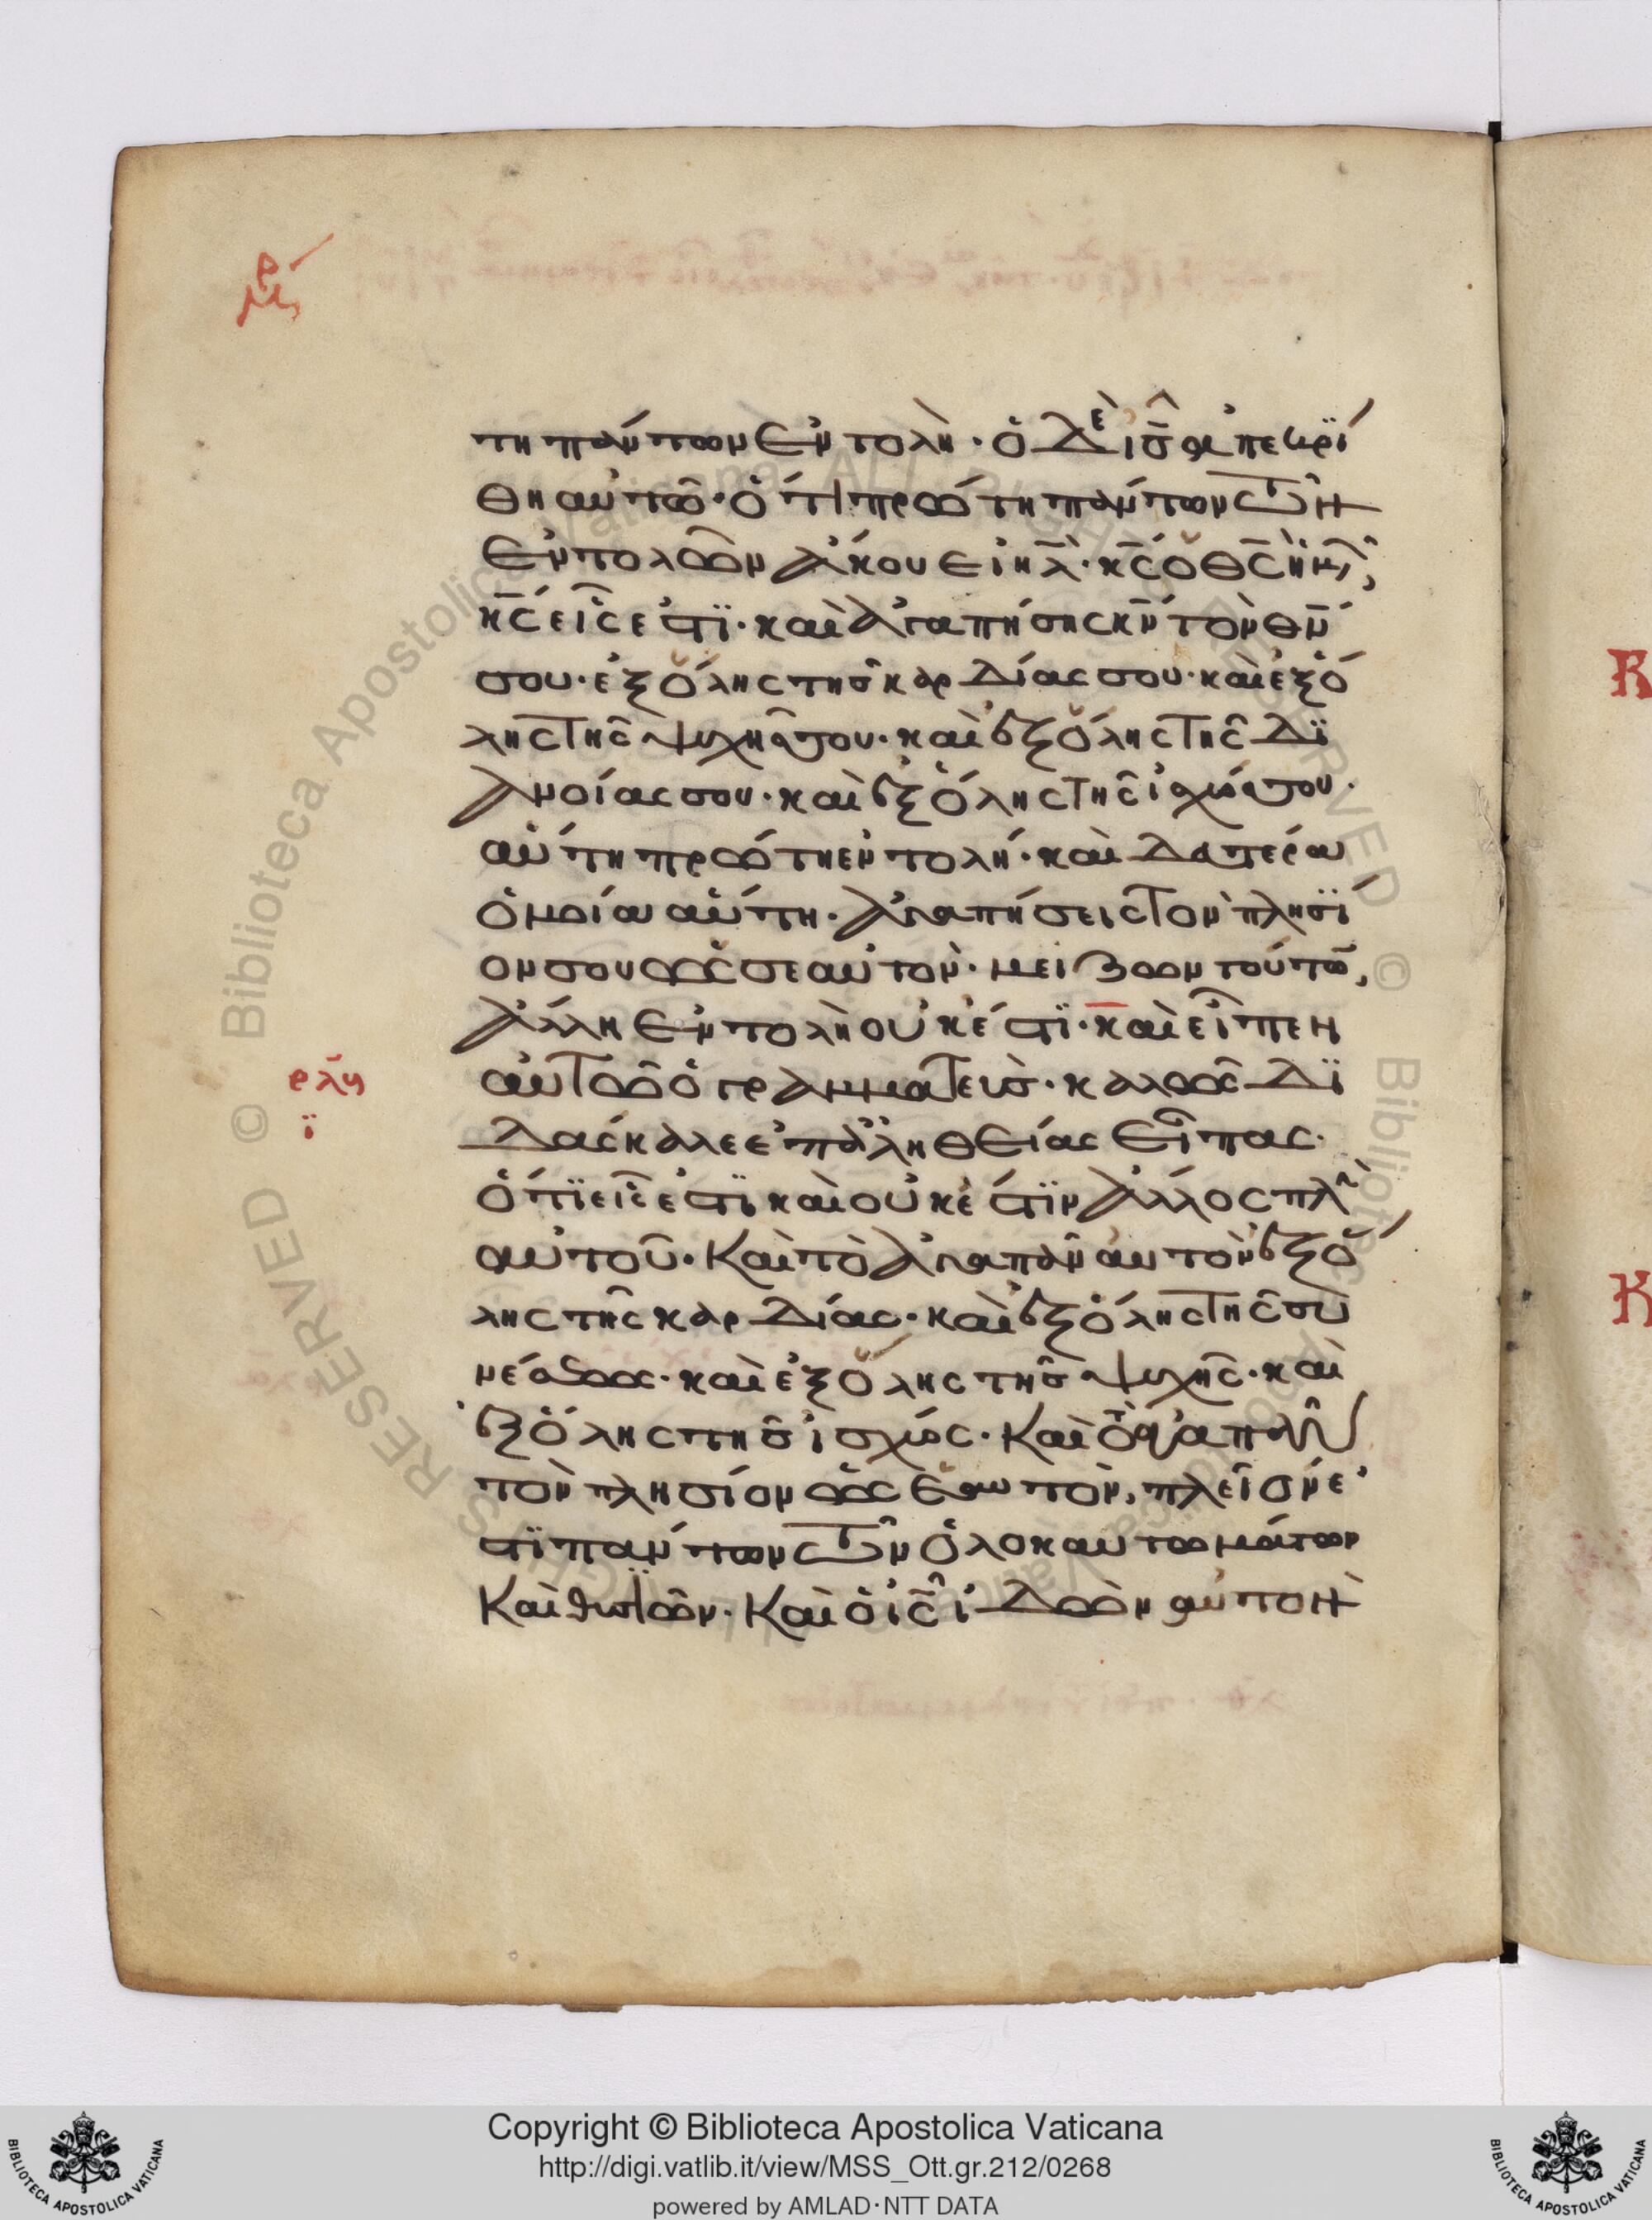 ρ
μϛ
τη πάντων ἐντολὴ· ὁ δὲ ι̅ς̅ ἀπεκρί
θη αὐτῶ· ὅτι πρώτη πάντων τῶν
ἐντολῶν ἄκουε ι̅η̅λ̅· κ̅ς̅ ὁ θ̅ς̅ ἡμῶ̅
κ̅ς̅ εἷς ἐστϊ· καὶ ἀγαπήσης κ̅ν̅ τὸν θ̅ν̅
σου· ἐξ ὅλης τῆς καρδίας σου· καὶ ἐξ ὅ
λης τῆς ψυχῆς σου· καὶ ἐξ ὅλης τῆς δϊ
ανοίας σου· καὶ ἐξ ὅλης τῆς ἰσχύος σου·
αὕτη πρώτη ἐντολή· καὶ δευτέρα
ὁμοία αὕτη· ἀγαπήσεις τὸν πλησΐ
ον σου ὡς σεαυτὸν· μείζων τούτω̅,
ἄλλη ἐντολὴ οὐκ ἔστϊ· καὶ εἶπεν
αὐτῶ ὁ γραμματεὺς· καλῶς δϊ
ρλη
ϊ
δάσκαλε ἐπ' ἀληθείας εἶπας·
ὅτϊ εἷς ἐστϊ καὶ οὐκ ἔστϊν ἄλλος πλὴ
αὐτοῦ· Καὶ τὸ ἀγαπᾶν αὐτὸν ἐξ ὅ
λης τῆς καρδίας· καὶ ἐξ ὅλης τῆς συ
νέσεως· καὶ ἐξ ὅλης τῆς ψυχῆς· καὶ
ἐξ ὅλης τῆς ἰσχύος· Καὶ τὸ ἀγαπᾶν
τὸν πλησίον ὡς ἑαυτὸν, πλεῖόν ἐ
στϊ πάντων τῶν ὁλοκαυτωμάτων
Καὶ θυσιῶν· Καὶ ὁ ι̅ς̅ ἰδὼν αὐτὸν
Copyright © Biblioteca Apostolica Vaticana
http://digi.vatlib.it/view/MSS_Ott.gr.212/0268
powered by AMLAD·NTT DATA